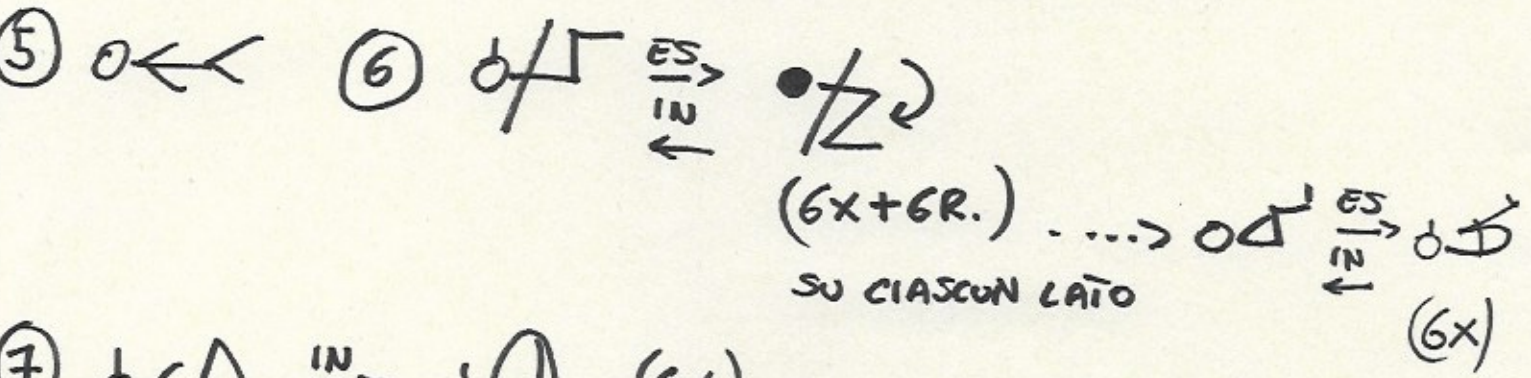 5 6 ES
IN
(6X+6R.) .....> ES
IN
SU CIASCUN LATO
(6X)
7 IN